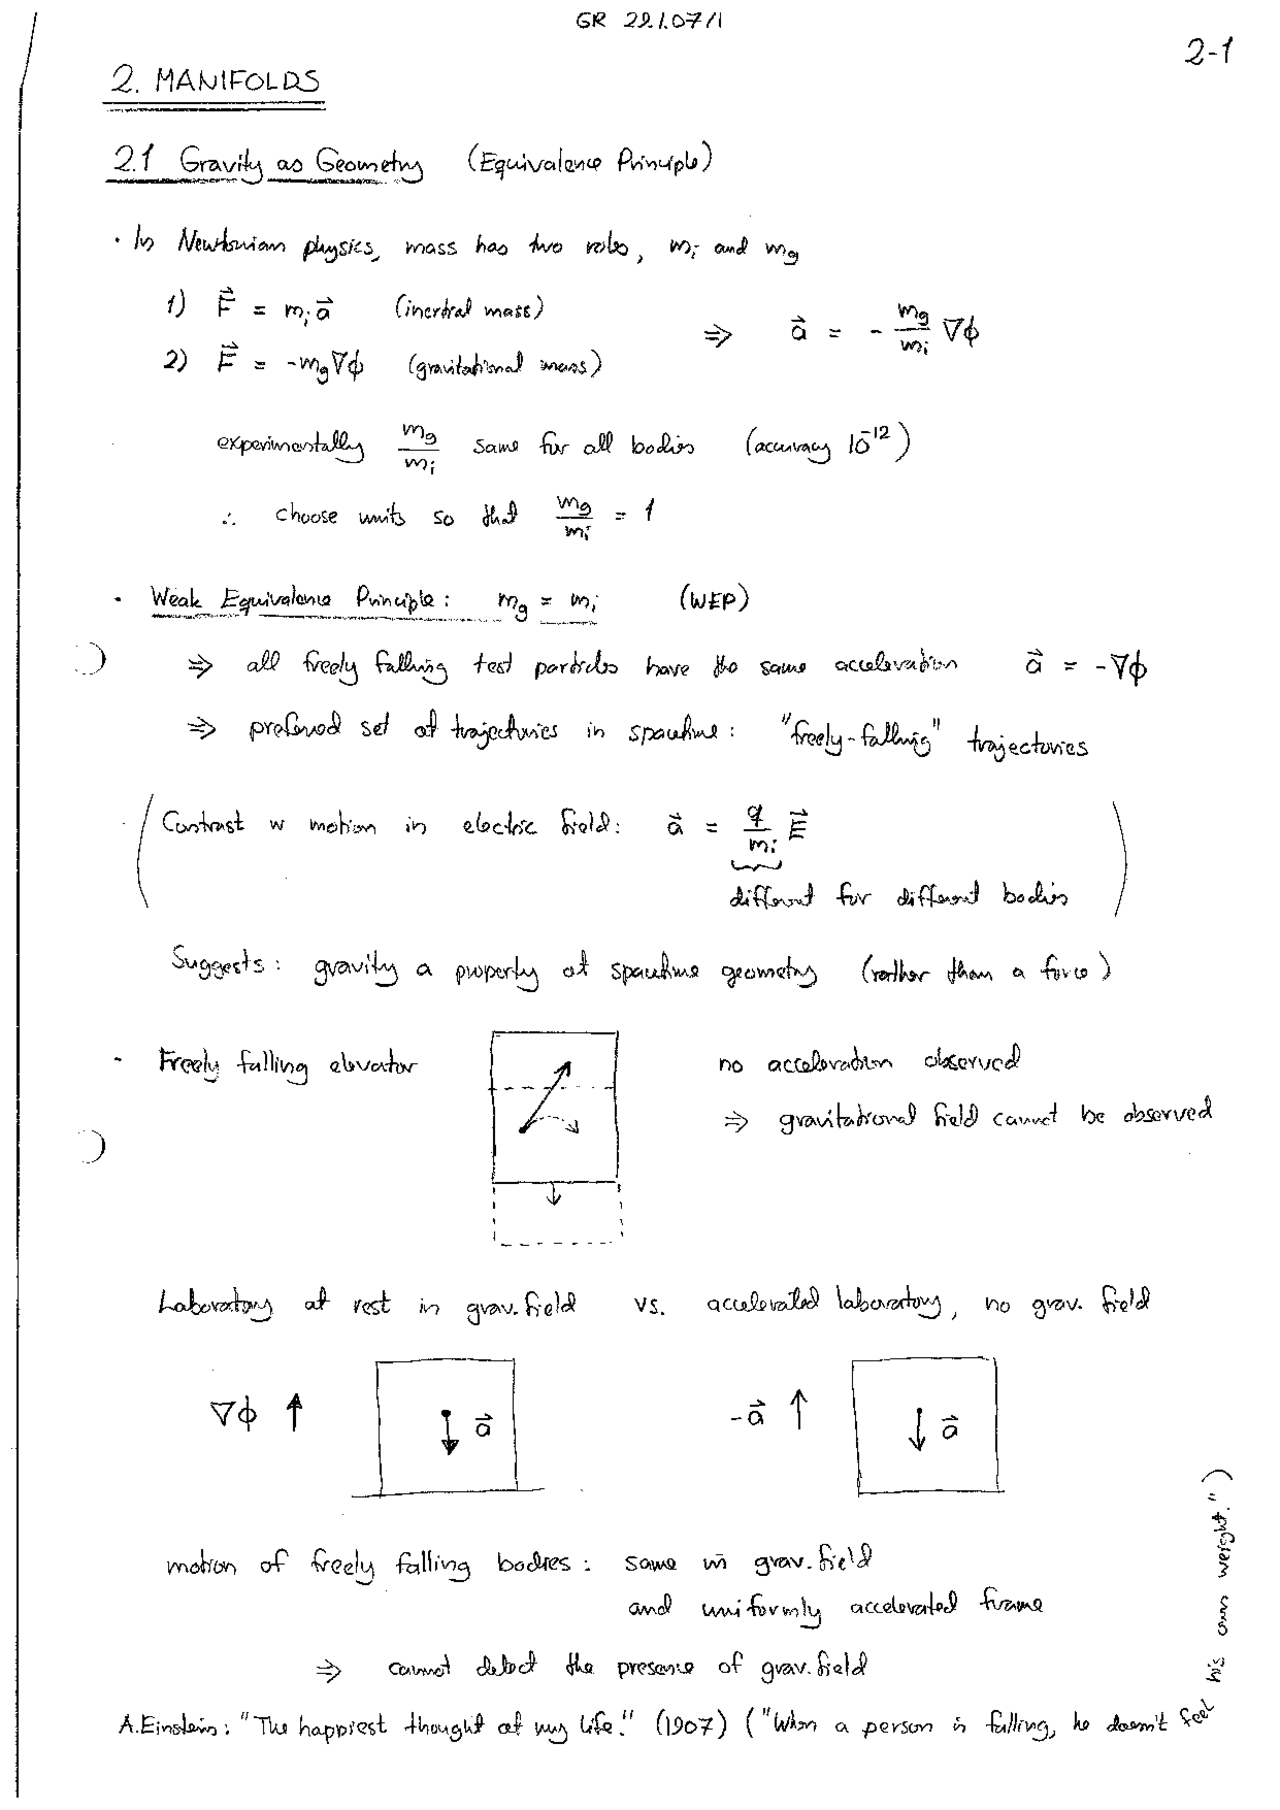 GR 22.1.07/1
2-1
2. MANIFOLDS
2.1 Gravity as Geometry (Equivalence Principle)
• In Newtonian physics, mass has two roles, mᵢ and m_g
1) F⃗ = mᵢa⃗ (inertial mass)
⇒ a⃗ = - m_g/mᵢ ∇ϕ
2) F⃗ = -m_g∇ϕ (gravitational mass)
experimentally m_g/mᵢ same for all bodies (accuracy 10⁻¹²)
∴ choose units so that m_g/mᵢ = 1
• Weak Equivalence Principle: m_g = mᵢ (WEP)
⇒ all freely falling test particles have the same acceleration a⃗ = -∇ϕ
⇒ preferred set of trajectories in spacetime: "freely-falling" trajectories
(Contrast w motion in electric field: a⃗ = q/mᵢ E⃗
different for different bodies)
Suggests: gravity a property of spacetime geometry (rather than a force)
• Freely falling elevator
no acceleration observed
⇒ gravitational field cannot be observed
Laboratory at rest in grav. field vs. accelerated laboratory, no grav. field
∇ϕ ↑ a⃗ -a⃗ ↑ a⃗
motion of freely falling bodies: same in grav. field
and uniformly accelerated frame
⇒ cannot detect the presence of grav. field
A. Einstein: "The happiest thought of my life." (1907) ("When a person is falling, he doesn't feel his own weight.")